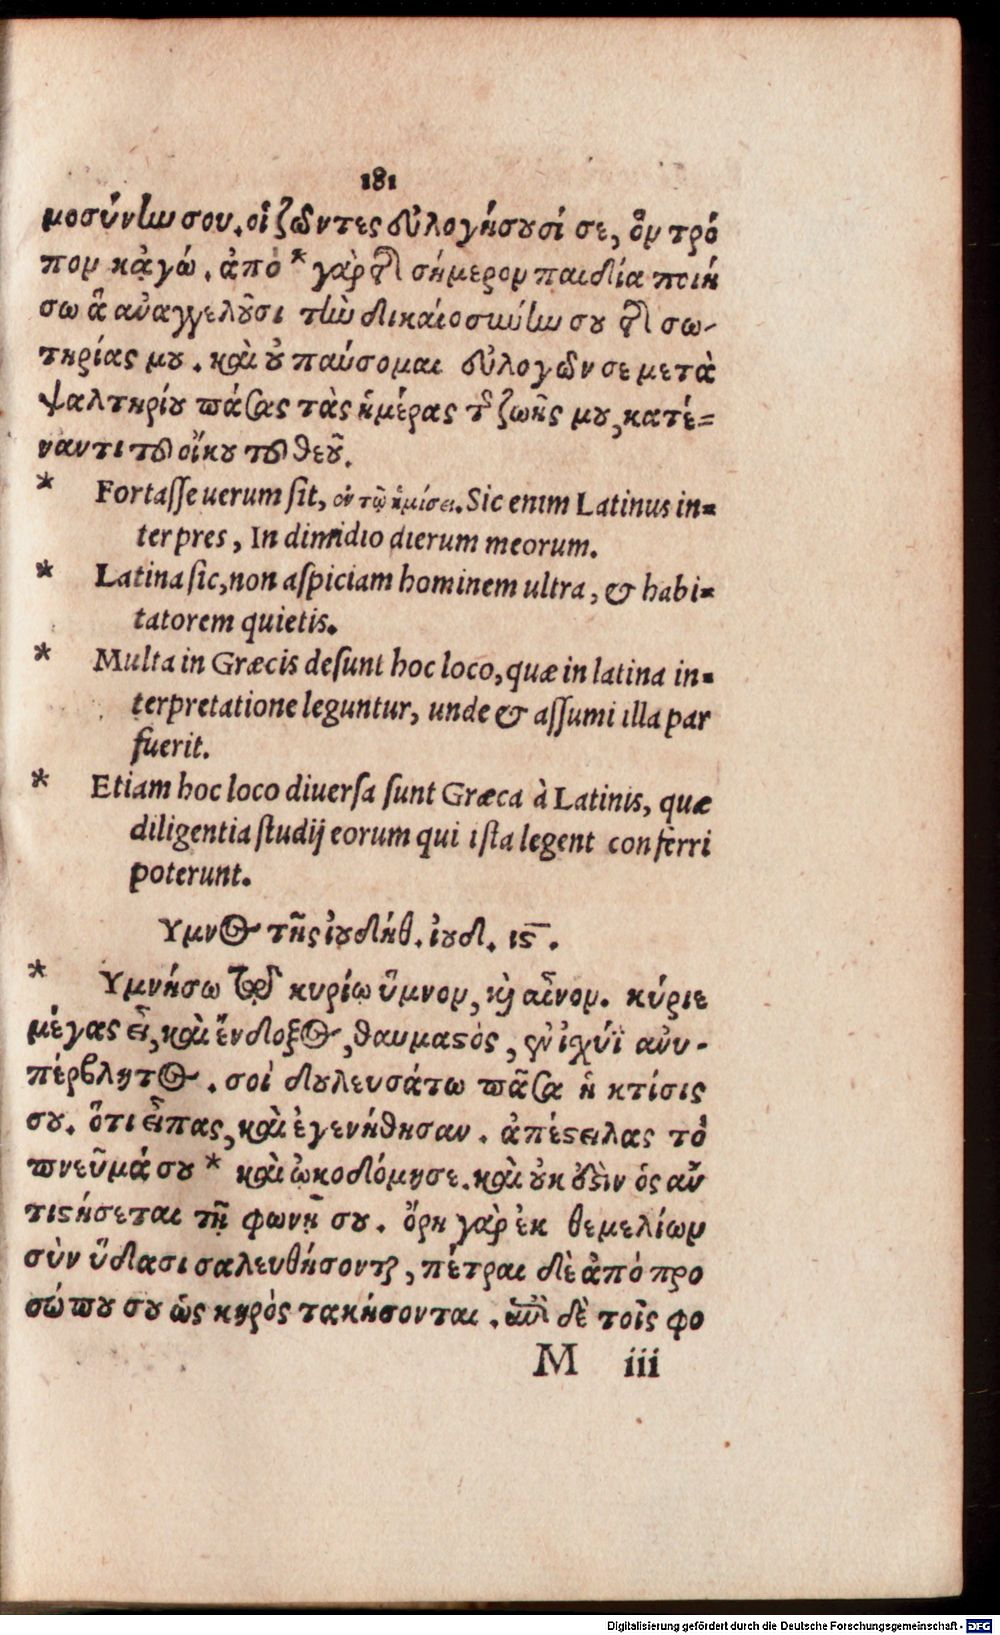 181
μοσύνην σου. οἱ ζῶντες εὐλογήσουσί σε, ὃν τρό
πον κἀγώ. ἀπὸ * γὰρ τῆς σήμερον παιδία ποιή
σω ἃ ἀναγγελοῦσι τὴν δικαιοσύνην σου τῆς σω-
τηρίας μου. καὶ οὐ παύσομαι εὐλογῶν σε μετὰ
ψαλτηρίου πάσας τὰς ἡμέρας τῆς ζωῆς μου, κατέ=
ναντι τοῦ οἴκου τοῦ θεοῦ.
* Fortasse uerum sit, ἐν τῷ ἡμίσει. Sic enim Latinus in=
terpres, In dimidio dierum meorum.
* Latina sic, non aspiciam hominem ultra, & habi=
tatorem quietis.
* Multa in Græcis desunt hoc loco, quæ in latina in=
terpretatione leguntur, unde & assumi illa par
fuerit.
* Etiam hoc loco diuersa sunt Græca à Latinis, quæ
diligentia studij eorum qui ista legent conferri
poterunt.
Υμνος τῆς ἰουδήθ. ἰουδ. ιϛ.
* Υμνήσω τῷ κυρίῳ ὕμνον, καὶ αἶνον. κύριε
μέγας εἶ, καὶ ἔνδοξος, θαυμαστὸς, ἐν ἰχύϊ ἀνυ-
πέρβλητος. σοὶ δουλευσάτω πᾶσα ἡ κτίσις
σου. ὅτι εἶπας, καὶ ἐγενήθησαν. ἀπέστειλας τὸ
πνεῦμά σου * καὶ ὠκοδόμησε. καὶ οὐκ ἔστιν ὃς ἀν
τιστήσεται τῇ φωνῇ σου. ὄρη γὰρ ἐκ θεμελίων
σὺν ὕδασι σαλευθήσονται, πέτραι δὲ ἀπὸ προ
σώπου σου ὡς κηρὸς τακήσονται. ἐπὶ δὲ τοῖς φο
M iii
Digitalisierung gefördert durch die Deutsche Forschungsgemeinschaft - DFG